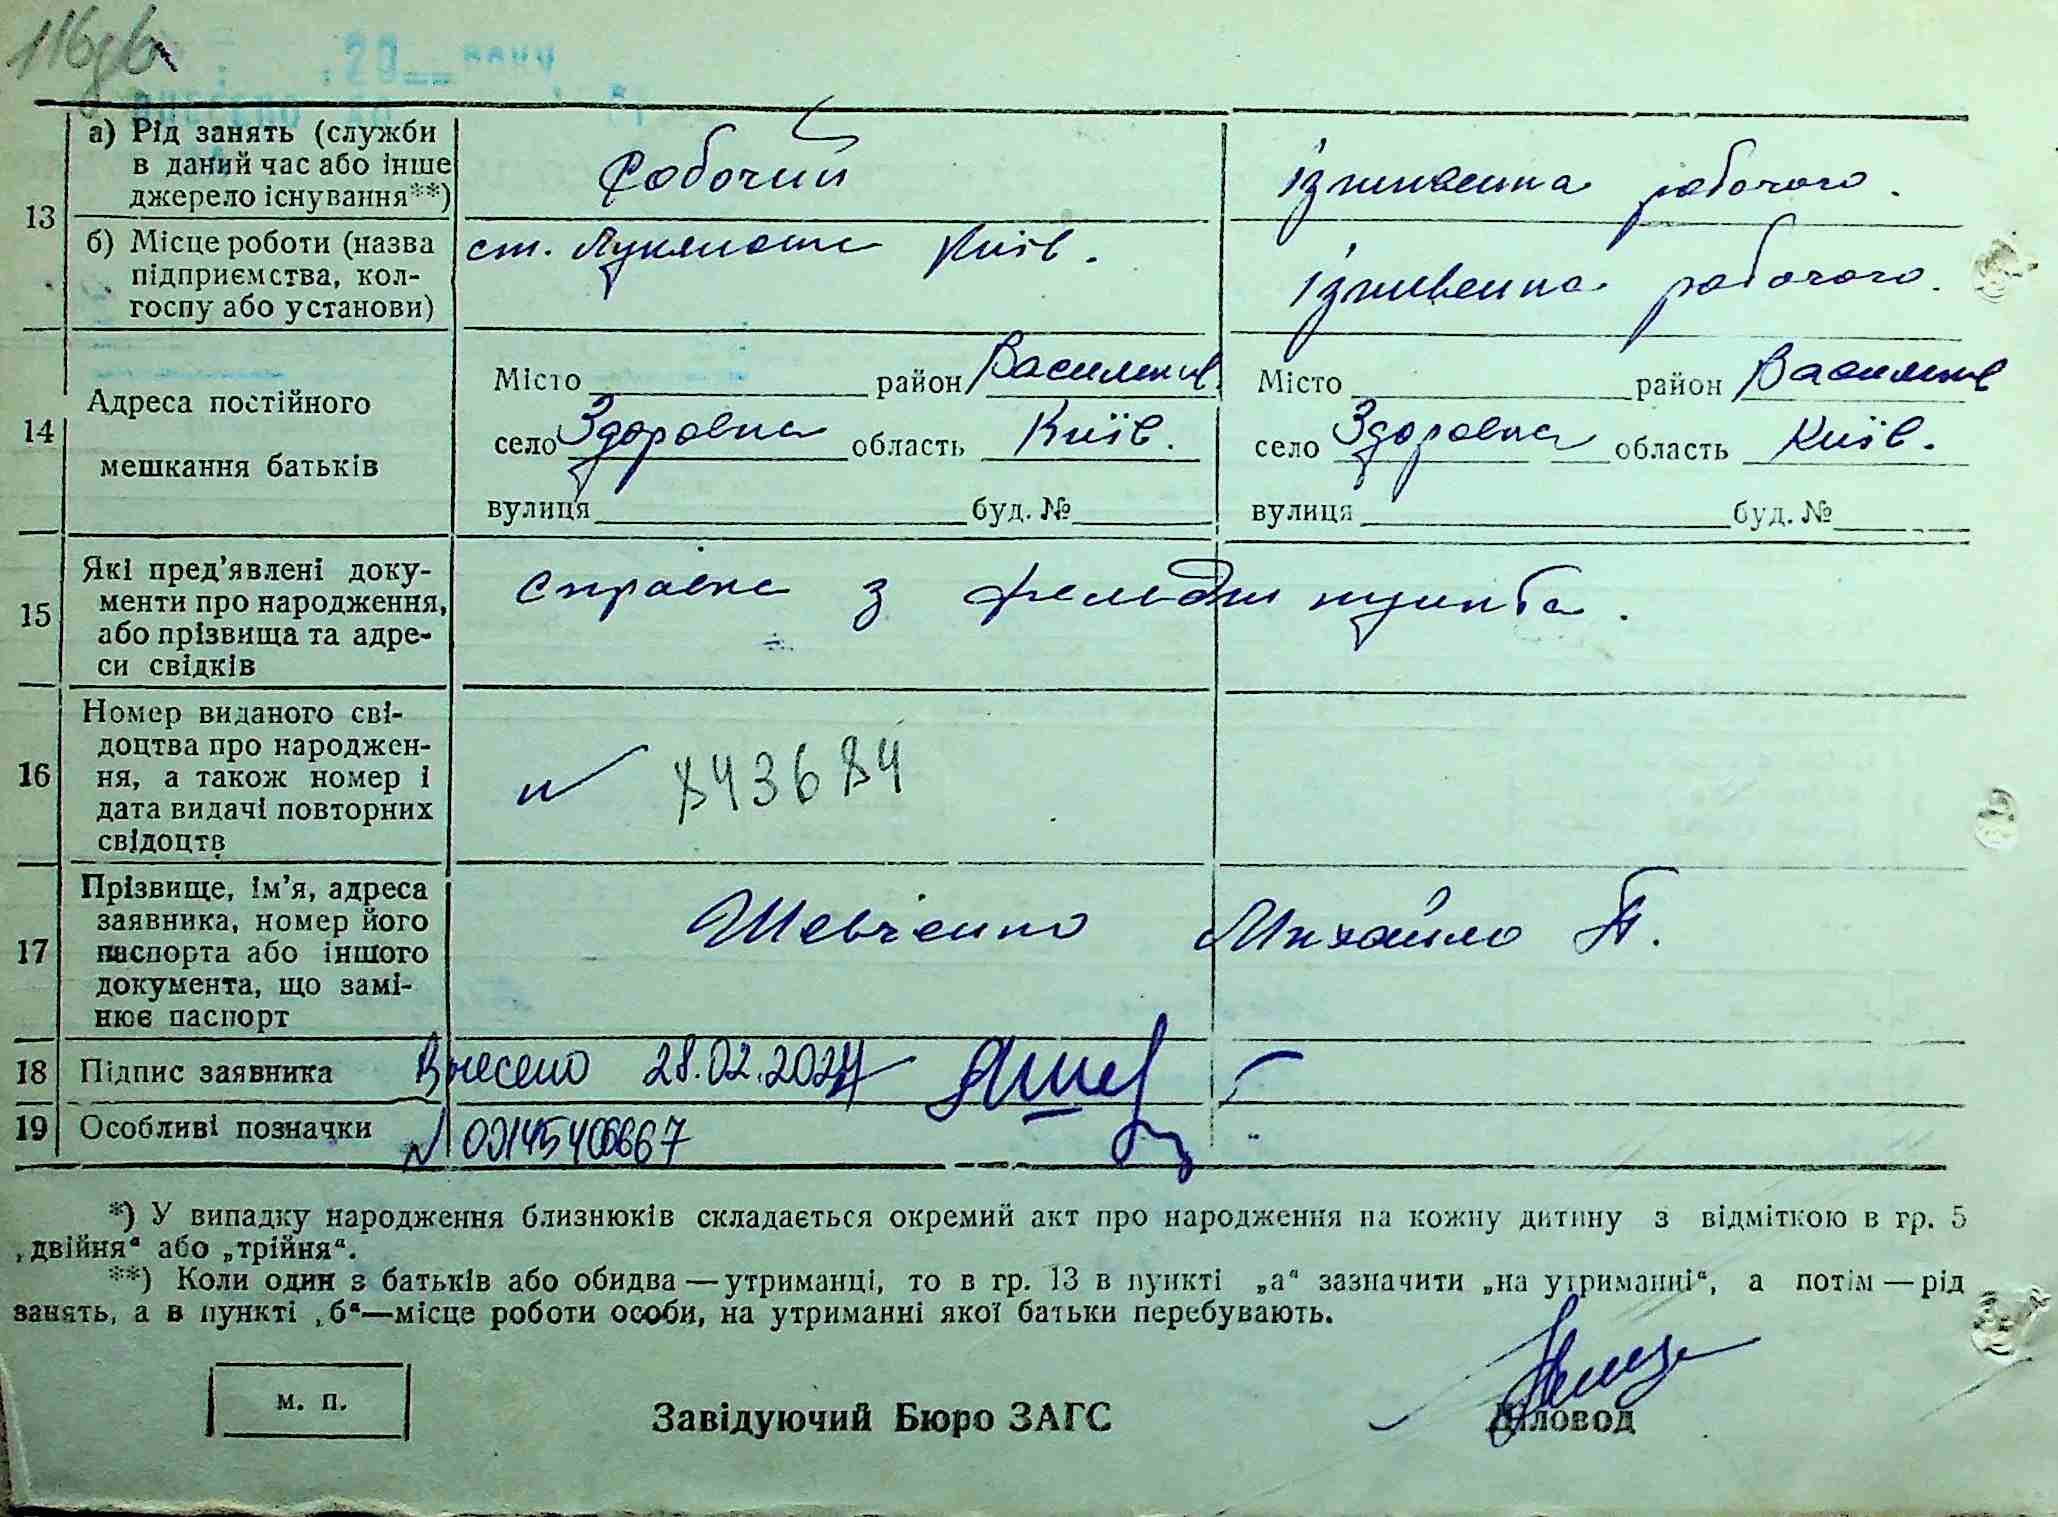 116зв
20__ року
внесено до
13
а) Рід занять (служби в даний час або інше джерело існування**)
Робочий
іждивенка робочого.
б) Місце роботи (назва підприємства, колгоспу або установи)
ст. Київ.
іждивенка робочого.
14
Адреса постійного мешкання батьків
Місто район Васильків.
село Здоровка область Київ.
вулиця буд. №
Місто район Васильків
село Здоровка область Київ.
вулиця буд. №
15
Які пред'явлені документи про народження, або прізвища та адреси свідків
справка з фельдш пункта.
16
Номер виданого свідоцтва про народження, а також номер і дата видачі повторних свідоцтв
№ 843684
17
Прізвище, ім'я, адреса заявника, номер його паспорта або іншого документа, що замінює паспорт
Шевченко Михайло П.
18 Підпис заявника
Внесено 28.02.2024
19 Особливі позначки
№ 00145406667
*) У випадку народження близнюків складається окремий акт про народження на кожну дитину з відміткою в гр. 5
„двійня“ або „трійня“.
**) Коли один з батьків або обидва — утриманці, то в гр. 13 в пункті „а“ зазначити „на утриманні“, а потім — рід
занять, а в пункті „б“—місце роботи особи, на утриманні якої батьки перебувають.
м. п.
Завідуючий Бюро ЗАГС
Діловод